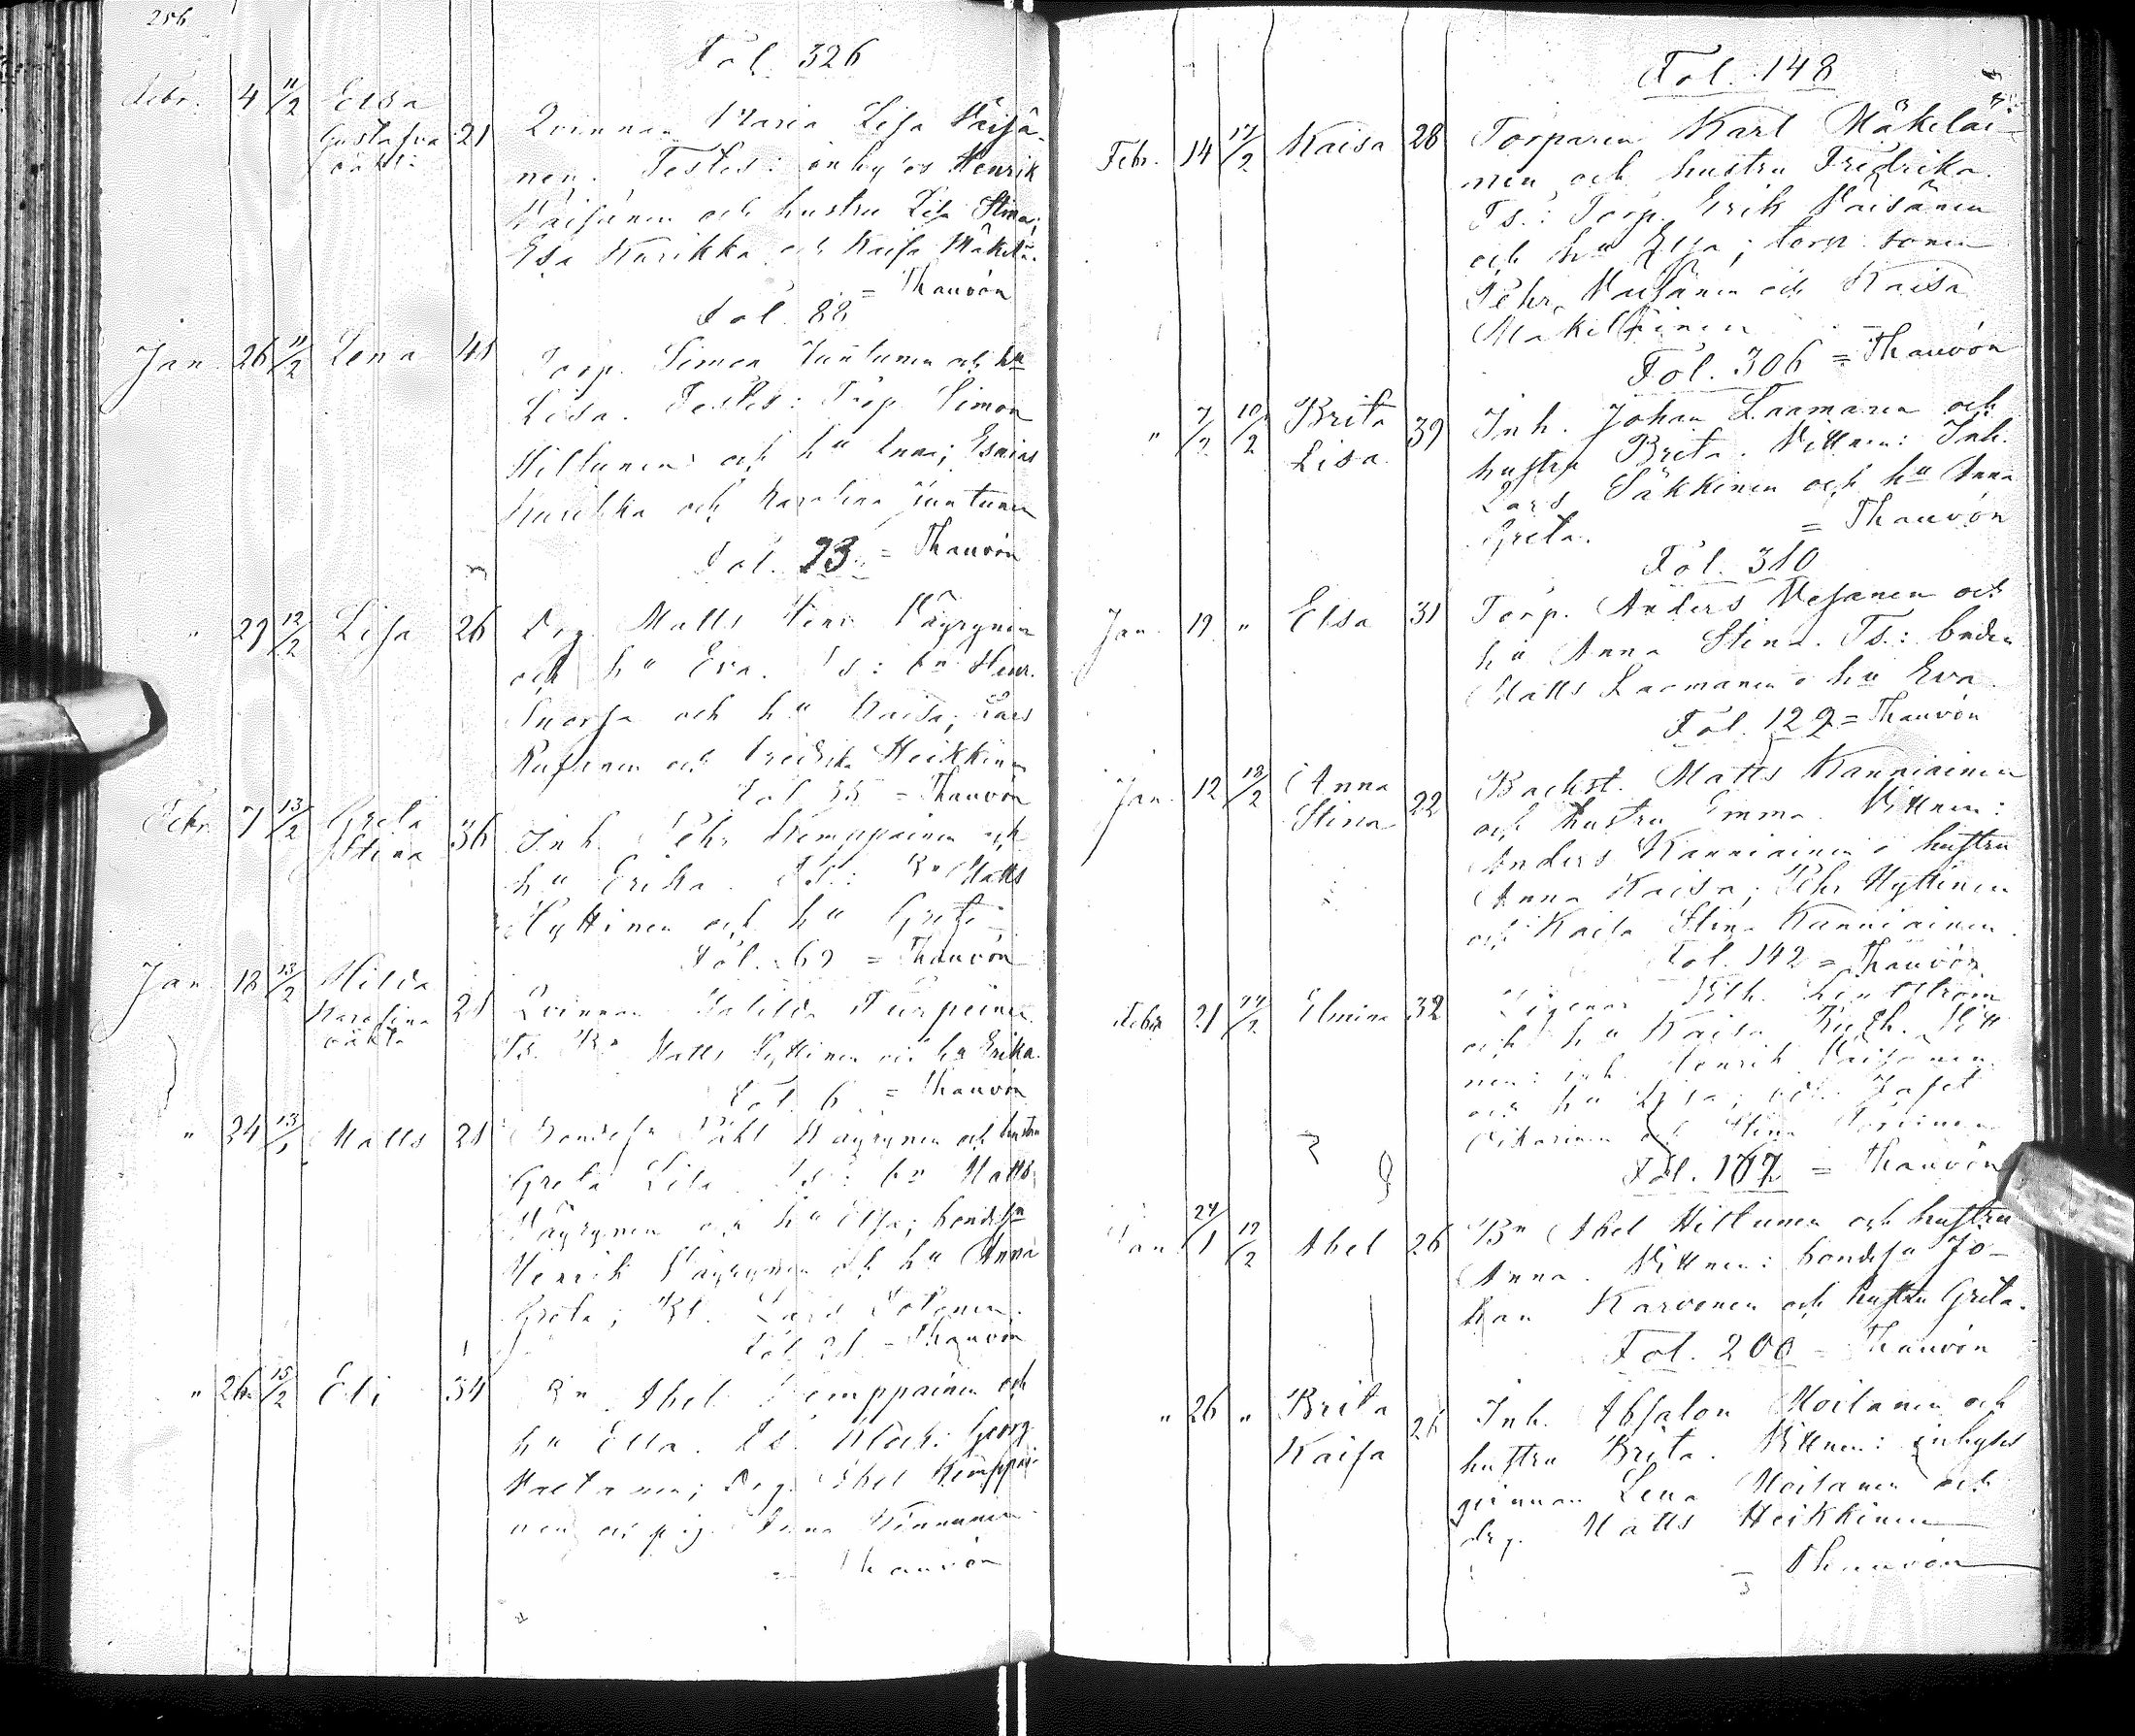 256
Fol. 326
Febr. 4 11/2 Elsa
Gustafva 21 Qvinnan Maria Lisa Väisä-
oäkta nen. Testes: inhyses Henrik
Väisänen och hustru Lisa Stina;
Esa Kurikka och Kaisa Mäkelä.
= Thauvón
Fol. 88
Jan. 26 11/2 Lena 41 Torp. Simon Juntunen och hu
Lisa. Testes: Torp. Simon
Hiltunen och hu Anna; Esaias
Kurikka och Karolina Juntunen
Fol. 23. = Thauvón
" 29 12/2 Lisa 26 Drg. Matts Henr. Väyrynen
och hu Eva. Ts: bn Henr.
och hu Kaisa; Lars
och Fredrika Heikkinen
Fol. 55 = Thauvón
Febr. 7 13/2 Greta
Stina 36 Inh. Pehr Kemppainen och
hu Erika. Ts.: Bn Matts
Hyttinen och hu Greta
Fol. 69 = Thauvón
Jan. 18 13/2 Hilda
Karolina 21 Qvinnan Matilda Turpeinen
oäkta Ts. Bn Matts Hyttinen och hu Erika.
Fol. 6 = Thauvón
" 24 13/ Matts 21 Bondesn Påhl Väyrynen och hustru
Greta Lisa. Ts: bn Matts
Väyrynen och hu Elsa; bondesn
Henrik Väyrynen och hu Anna
Greta; Lars
Fol. 21 = Thauvón
" 26 15/2 Eli 34 Bn Abel Kemppainen och
hu Ella. Ts. Klock. Georg
drg. Abel Kemppai-
nen och pig. Anna Kinnunen
= Thauvón
Fol. 148
Febr. 14 17/2 Kaisa 28 Torparen Karl Mäkeläi-
nen och hustru Fredrika.
Ts.: Torp. Erik Väisänen
och hu Elsa; torp. sonen
Pehr Väisänen och Kaisa
Mäkeläinen
Fol. 306 = Thauvón
" 7/2 10/2 Brita 39 Inh. Johan Laamanen och
Lisa. hustru Brita. Vittnen: Inh.
Lars Säkkinen och hu Anna
Greta. = Thauvón
Fol. 310
Jan. 19 " Elsa 31 Torp. Anders Vesanen och
hu Anna Stina. Ts.: bnden
Matts Laamanen o hu Eva
Fol. 122 = Thauvón
Jan. 12 18/2 Anna 22 Backst. Matts Kanniainen
Stina och hustru Emma. Vittnen:
Anders Kanniainen o hustru
Anna Kaisa; Pehr Hyttinen
och Kaisa Stina Kanniainen.
Fol. 142 = Thauvón
Febr. 21 Elmina 32
och hu Kaisa Vitt-
nen: inh. Henrik Väisänen
och hu Lisa; Jafet
och Stina
Fol. 167 = Thauvón
Jan. 24/1 17/2 Abel 26 Bn Abel Hiltunen och hustru
Anna. Vittnen: bondesn Jo-
han Karvonen och hustru Greta.
Fol. 200 = Thauvón
" 26 " Brita 26 Inh. Absalon Moilanen och
Kaisa hustru Brita. Vittnen: inhyses
qvinnan Lena Moilanen och
drg. Matts Heikkinen
= Thauvón